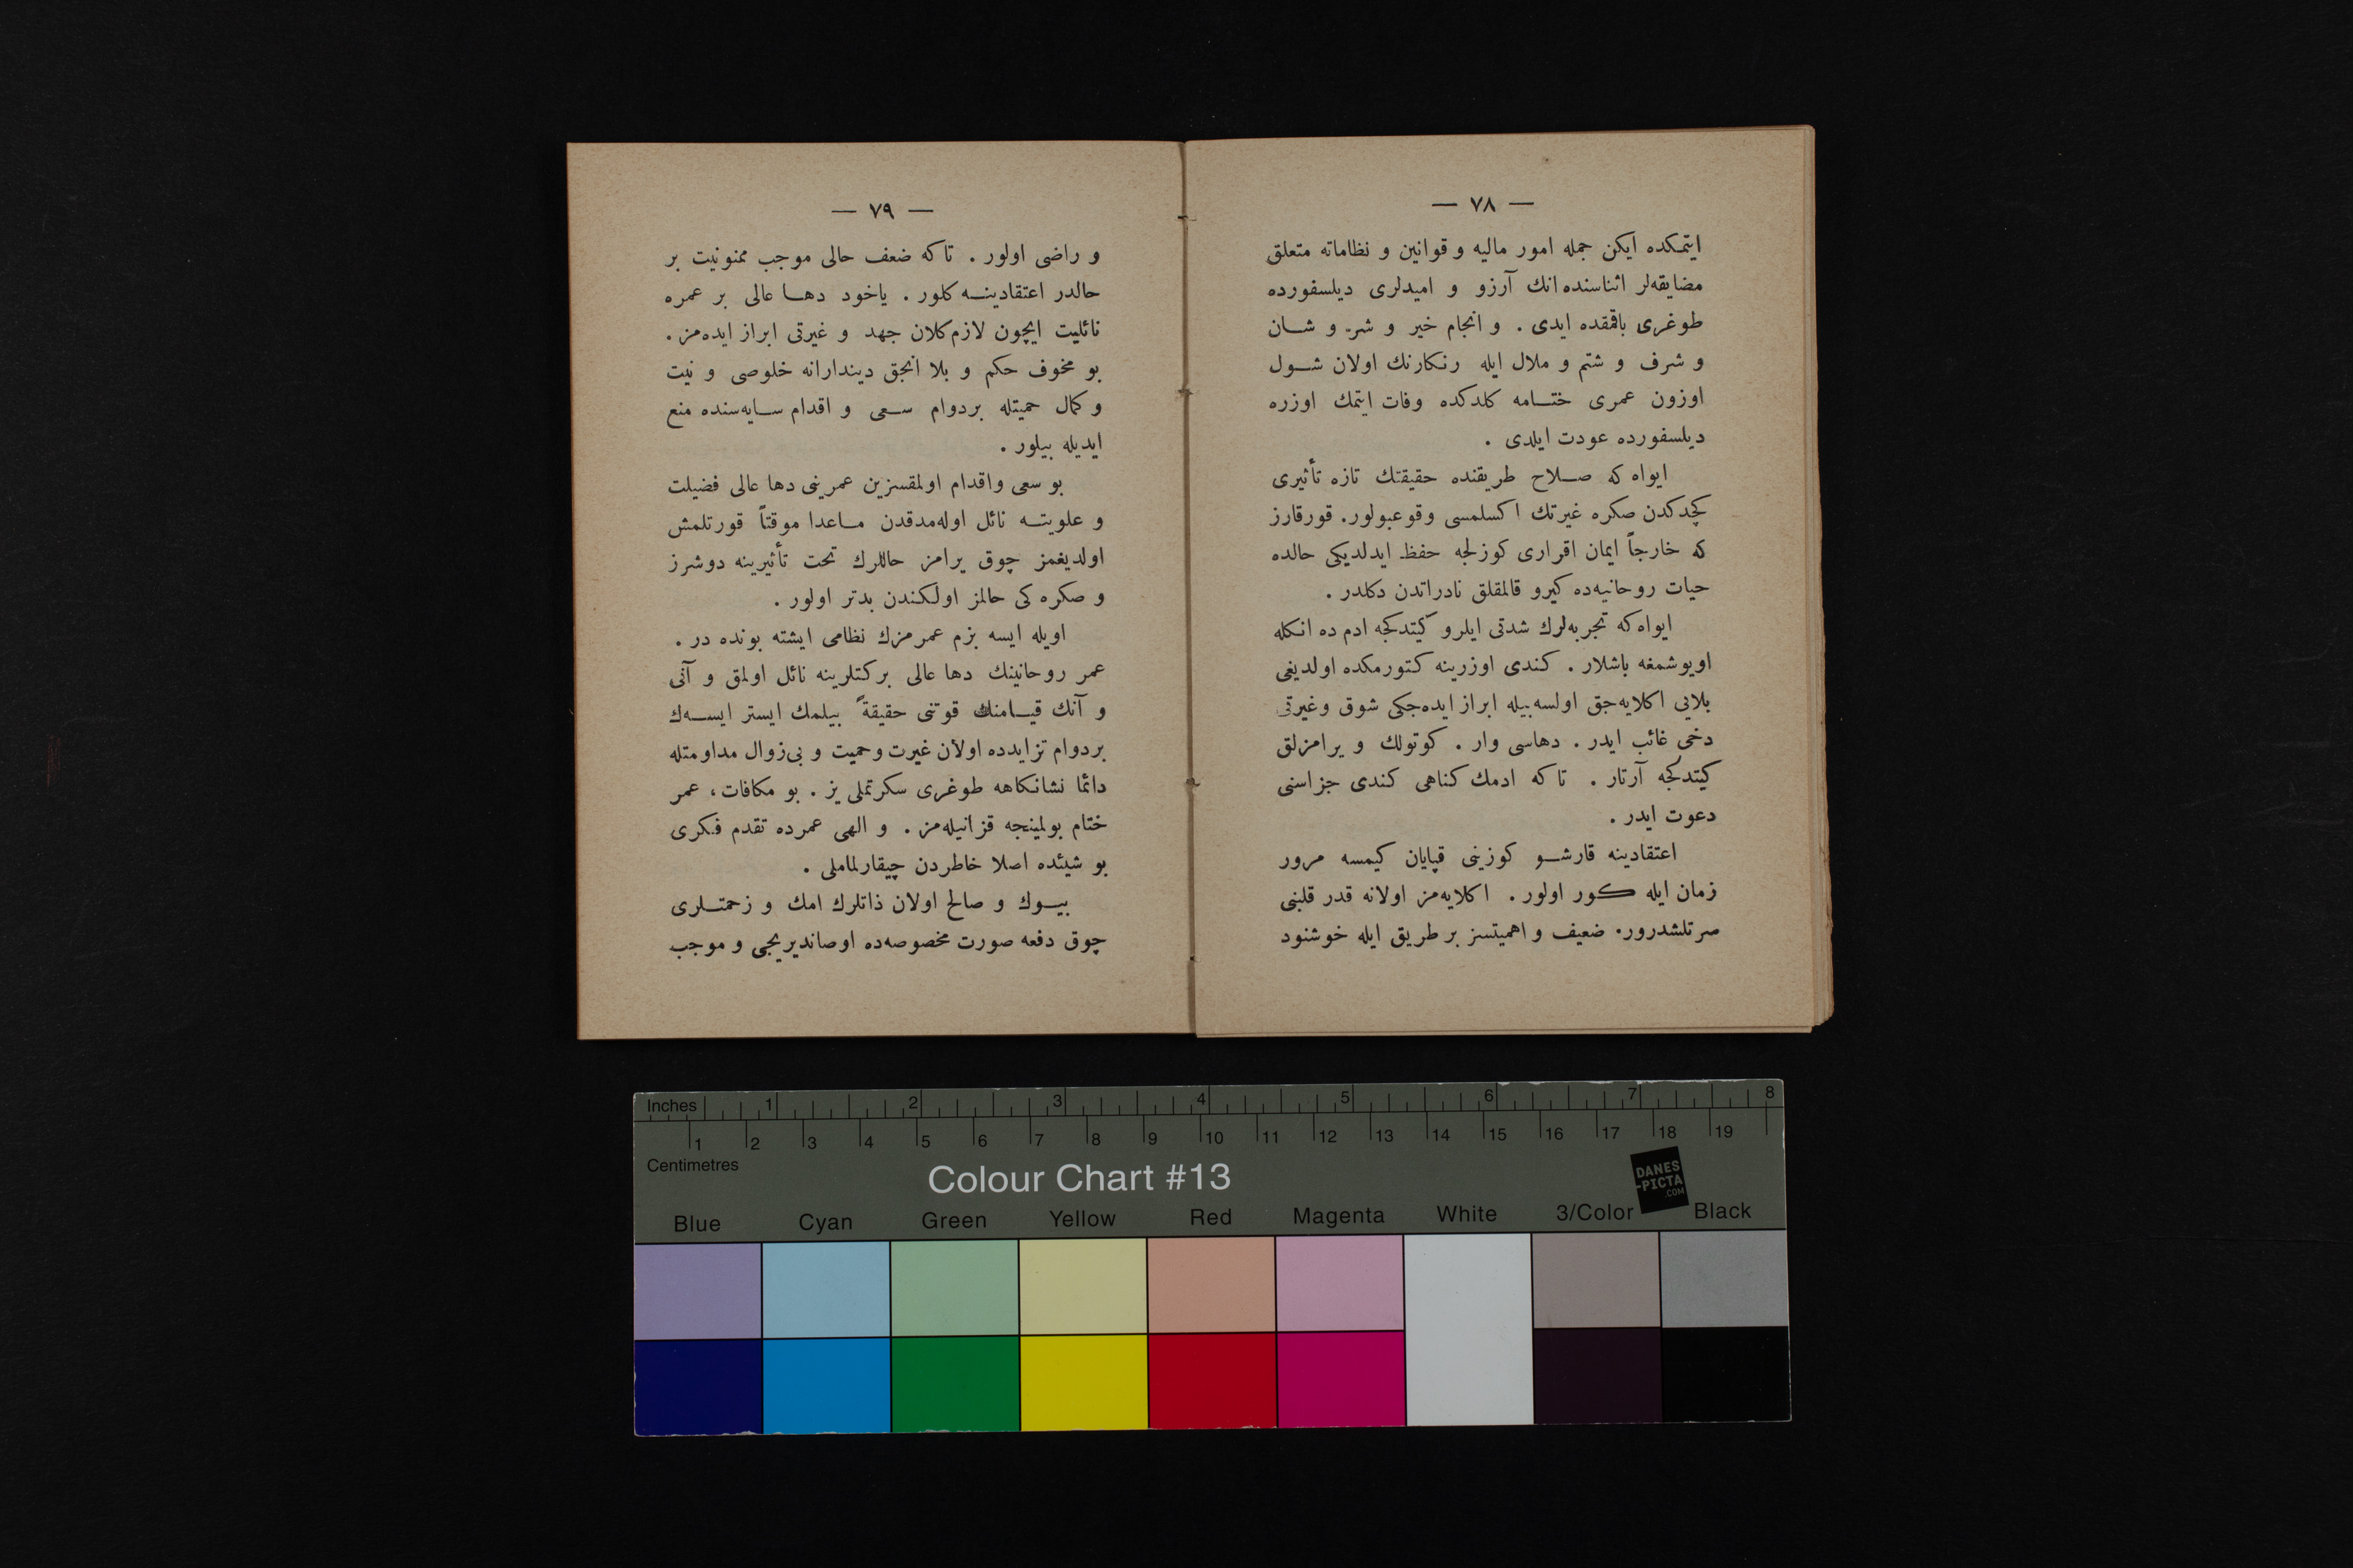 — ٧٨ —
ايتمكده ايكن جمله امور ماليه و قوانين و نظاماته متعلق
مضايقه‌لر اثناسنده انك آرزو و اميدلرى ديلسفورده
طوغرى باقمقده ايدى . و انجام خير و شر و شان
و شرف و شتم و ملال ايله رنكارنك اولان شول
اوزون عمرى ختامه كلدكده وفات ايتمك اوزره
ديلسفورده عودت ايلدى .
ايواه كه صلاح طريقنده حقيقتك تازه تأثيرى
كچدكدن صكره غيرتك اكسلمسى وقوعبولور. قورقارز
كه خارجاً ايمان اقرارى كوزلجه حفظ ايدلديكى حالده
حيات روحانيه‌ده كيرو قالمقلق نادراتدن دكلدر .
ايواه كه تجربه‌لرك شدتى ايلرو كيتدكجه ادم ده انكله
اويوشمغه باشلار . كندى اوزرينه كتورمكده اولديغى
بلايى اكلايه‌جق اولسه‌بيله ابراز ايده‌جكى شوق وغيرتى
دخى غائب ايدر . دهاسى وار . كوتولك و يرامزلق
كيتدكجه آرتار . تاكه ادمك كناهى كندى جزاسنى
دعوت ايدر .
اعتقادينه قارشو كوزينى قپايان كيمسه مرور
زمان ايله كور اولور . اكلايه‌مز اولانه قدر قلبنى
سرتلشدرور. ضعيف و اهميتسز بر طريق ايله خوشنود
— ٧٩ —
و راضى اولور . تاكه ضعف حالى موجب ممنونيت بر
حالدر اعتقادينه كلور . ياخود دها عالى بر عمره
نائليت ايچون لازم‌كلان جهد و غيرتى ابراز ايده‌مز .
بو مخوف حكم و بلا انجق ديندارانه خلوصى و نيت
و كمال حميتله بردوام سعى و اقدام سايه‌سنده منع
ايديله بيلور .
بو سعى واقدام اولمقسزين عمرينى دها عالى فضيلت
و علويته نائل اوله‌مدقدن ماعدا موقتاً قورتلمش
اولديغمز چوق يرامز حاللرك تحت تأثيرينه دوشرز
و صكره كى حالمز اولكندن بدتر اولور .
اويله ايسه بزم عمرمزك نظامى ايشته بونده در .
عمر روحانينك دها عالى بركتلرينه نائل اولمق و آنى
و آنك قيامنك قوتنى حقيقةً بيلمك ايستر ايسه‌ك
بردوام تزايدده اولان غيرت وحميت و بى‌زوال مداومتله
دائما نشانكاهه طوغرى سكرتملى يز . بو مكافات، عمر
ختام بولمينجه قزانيله‌مز . و الهى عمرده تقدم فكرى
بو شيئده اصلا خاطردن چيقارلماملى .
بيوك و صالح اولان ذاتلرك امك و زحمتلرى
چوق دفعه صورت مخصوصه‌ده اوصانديريجى و موجب
Inches 1 2 3 4 5 6 7 8
1 2 3 4 5 6 7 8 9 10 11 12 13 14 15 16 17 18 19
Centimetres
Colour Chart #13
DANES
-PICTA
.COM
Blue Cyan Green Yellow Red Magenta White 3/Color Black